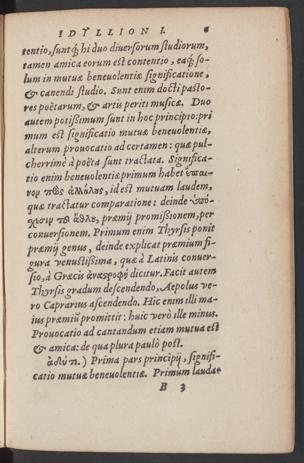 IDYLLION I.
tentio, suntq́; hi duo diuersorum studiorum,
tamen amica eorum est contentio, eaq́; so-
lum in mutuæ beneuolentiæ significatione,
& canendi studio. Sunt enim docti pasto-
res poëtarum, & artis periti musicæ. Duo
autem potissimum sunt in hoc principio: pri
mum est significatio mutuæ beneuolentiæ,
alterum prouocatio ad certamen: quæ pul-
cherrimè à poëta sunt tractata. Significa-
tio enim beneuolentiæ primum habet ἔπαι-
νον πρὸς ἀλλήλους, id est mutuam laudem,
quæ tractatur comparatione: deinde ὑπό-
χεσιν τοῦ ἄθλου, præmij promissionem, per
conuersionem. Primum enim Thyrsis ponit
præmij genus, deinde explicat præmium fi-
gura venustissima, quæ à Latinis conuer-
sio, à Græcis ἀναστροφή dicitur. Facit autem
Thyrsis gradum descendendo, Aepolus ve-
ro Caprarius ascendendo. Hic enim illi ma-
ius præmiũ promittit: huic verò ille minus.
Prouocatio ad cantandum etiam mutua est
& amica: de qua plura paulò post.
ἁδύ τι.) Prima pars principij, signifi-
catio mutuæ beneuolentiæ. Primum laudat
B 3